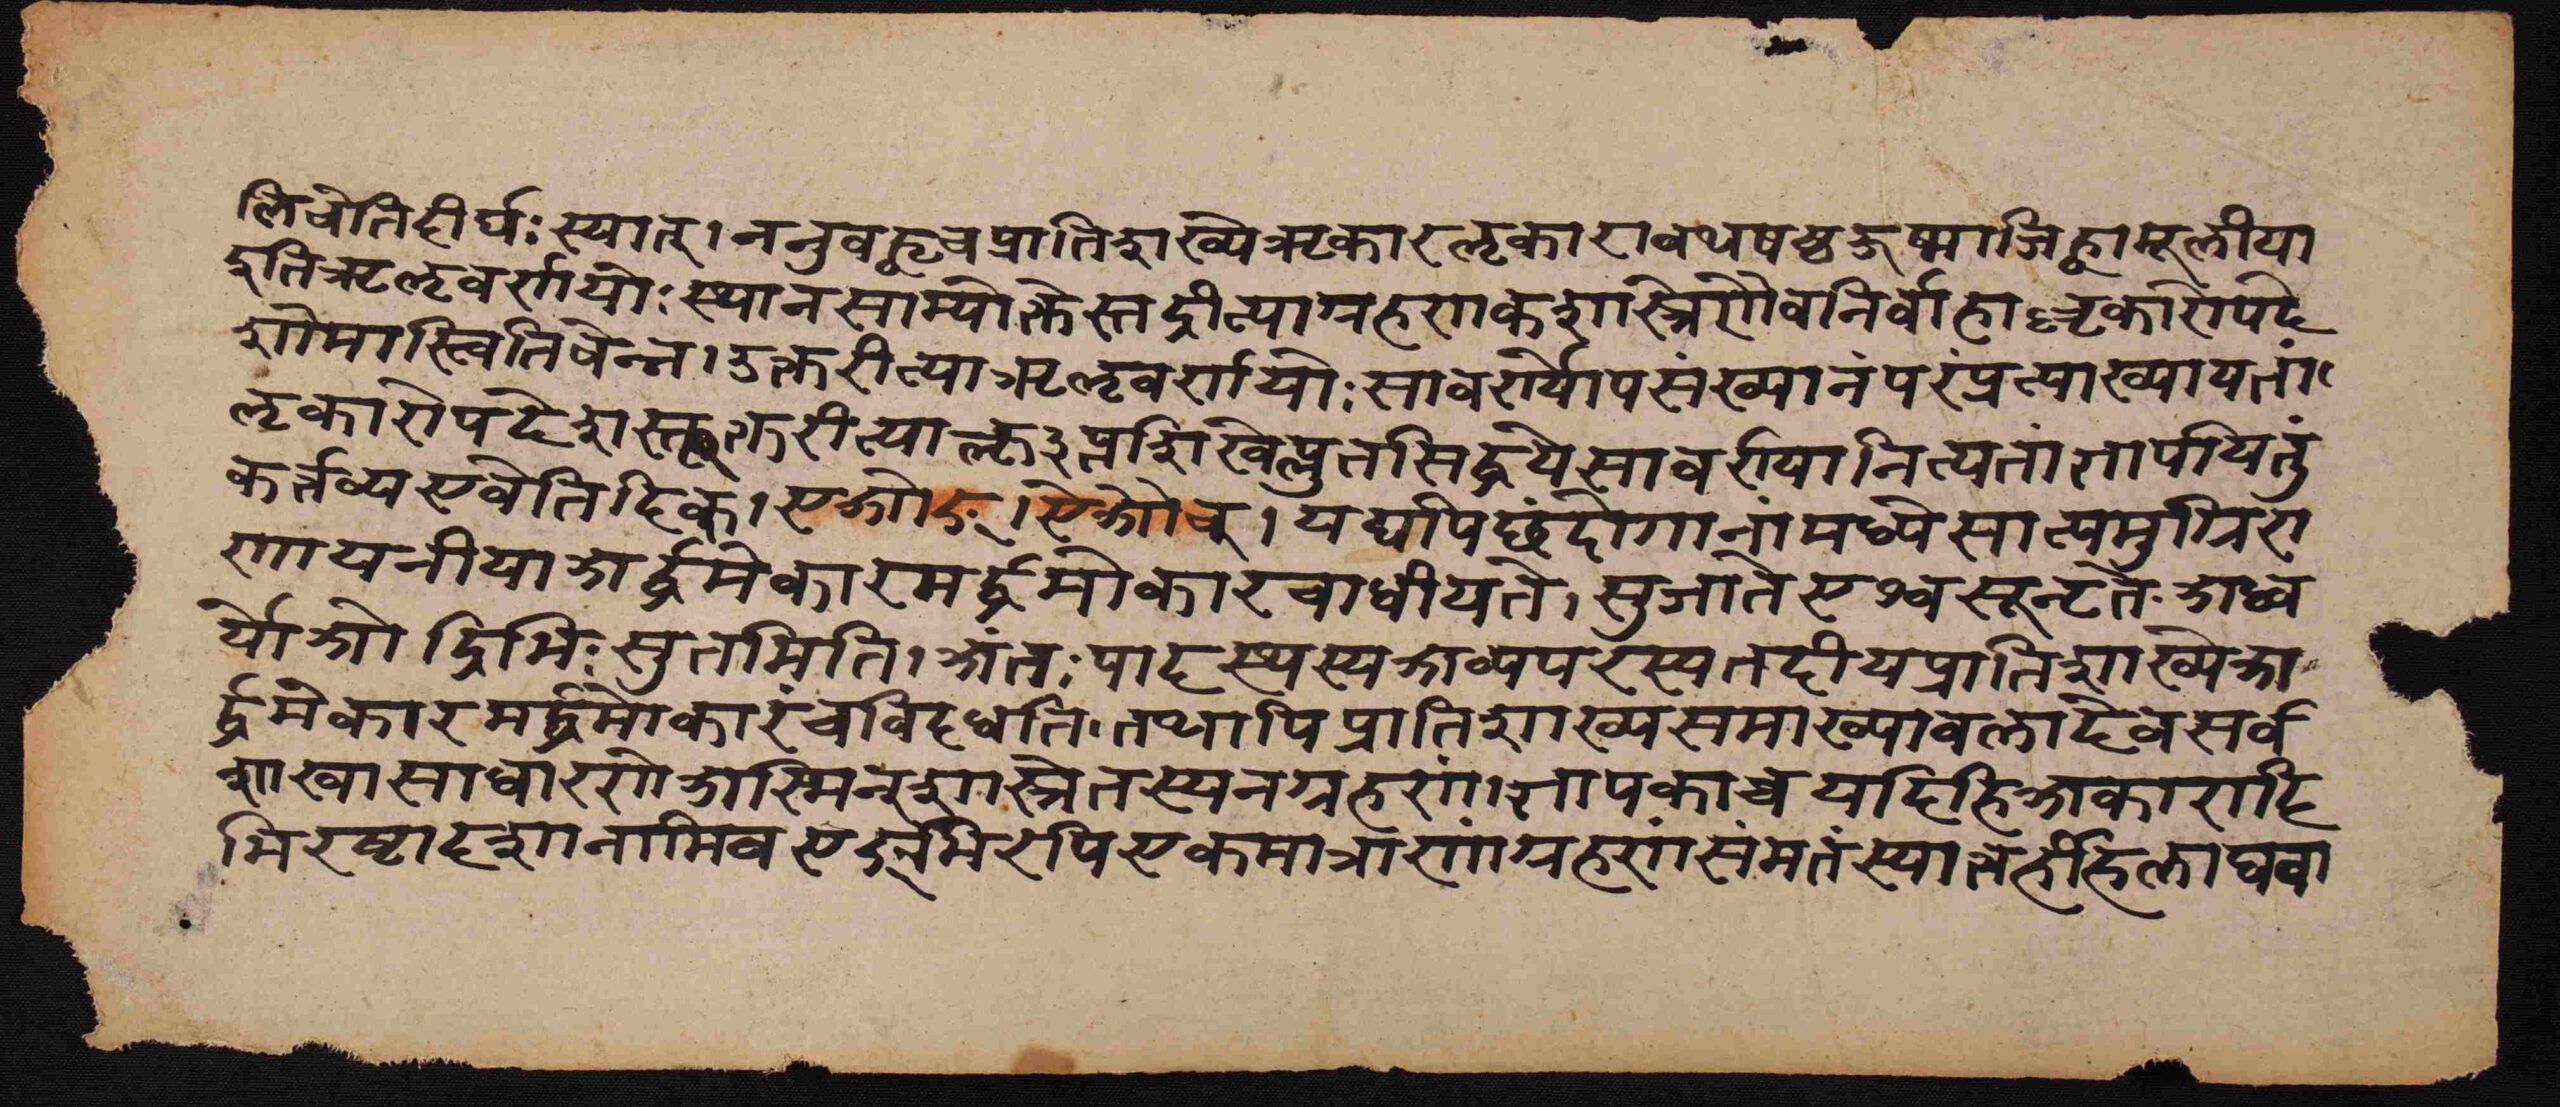 लिचेतिदीर्घः स्यात् । ननुवह्वृचप्रातिशाख्येऋकारलृकारावथषष्ठऊष्माजिह्वामूलीया
इतिऋलृवर्णयोः स्थानसाम्योक्तेस्तद्रीत्याग्रहणकशास्त्रेणैवनिर्वाहाॡकारोपदे
शोमास्त्वितिचेन्न । उक्तरीत्याऋलृवर्णयोः सावर्ण्योपसंख्यानंपरंप्रत्याख्यायतां ।
लृकारोपदेशस्तूक्तरीत्याकॢ३प्तशिखेप्लुतसिद्धयेसावर्ण्यानित्यतांज्ञापयितुं
कर्त्तव्यएवेतिदिक् । एओङ् । ऐऔच् । यद्यपिछंदोगानांमध्येसात्यमुग्रिरा
णायनीयाअर्द्धमेकारमर्द्धमोकारचाधीयते । सुजातेएश्वसूनृते अध्व
र्योओद्रिभिः सुतमिति । अंतः पादस्थस्यअव्यपरस्यतदीयप्रातिशाख्येअ
र्द्धमेकारमर्द्धमोकारंचविदधति । तथापिप्रातिशाख्यसमाख्यावलादेवसर्व
शाखासाधारणेअस्मिन्शास्त्रेतस्यनग्रहणं । ज्ञापकाच्चयदिहिअकारादि
भिरष्टादशानामिवएङ्भिरपिएकमात्राणांग्रहणंसंमतंस्यात्तर्हिलाघवा